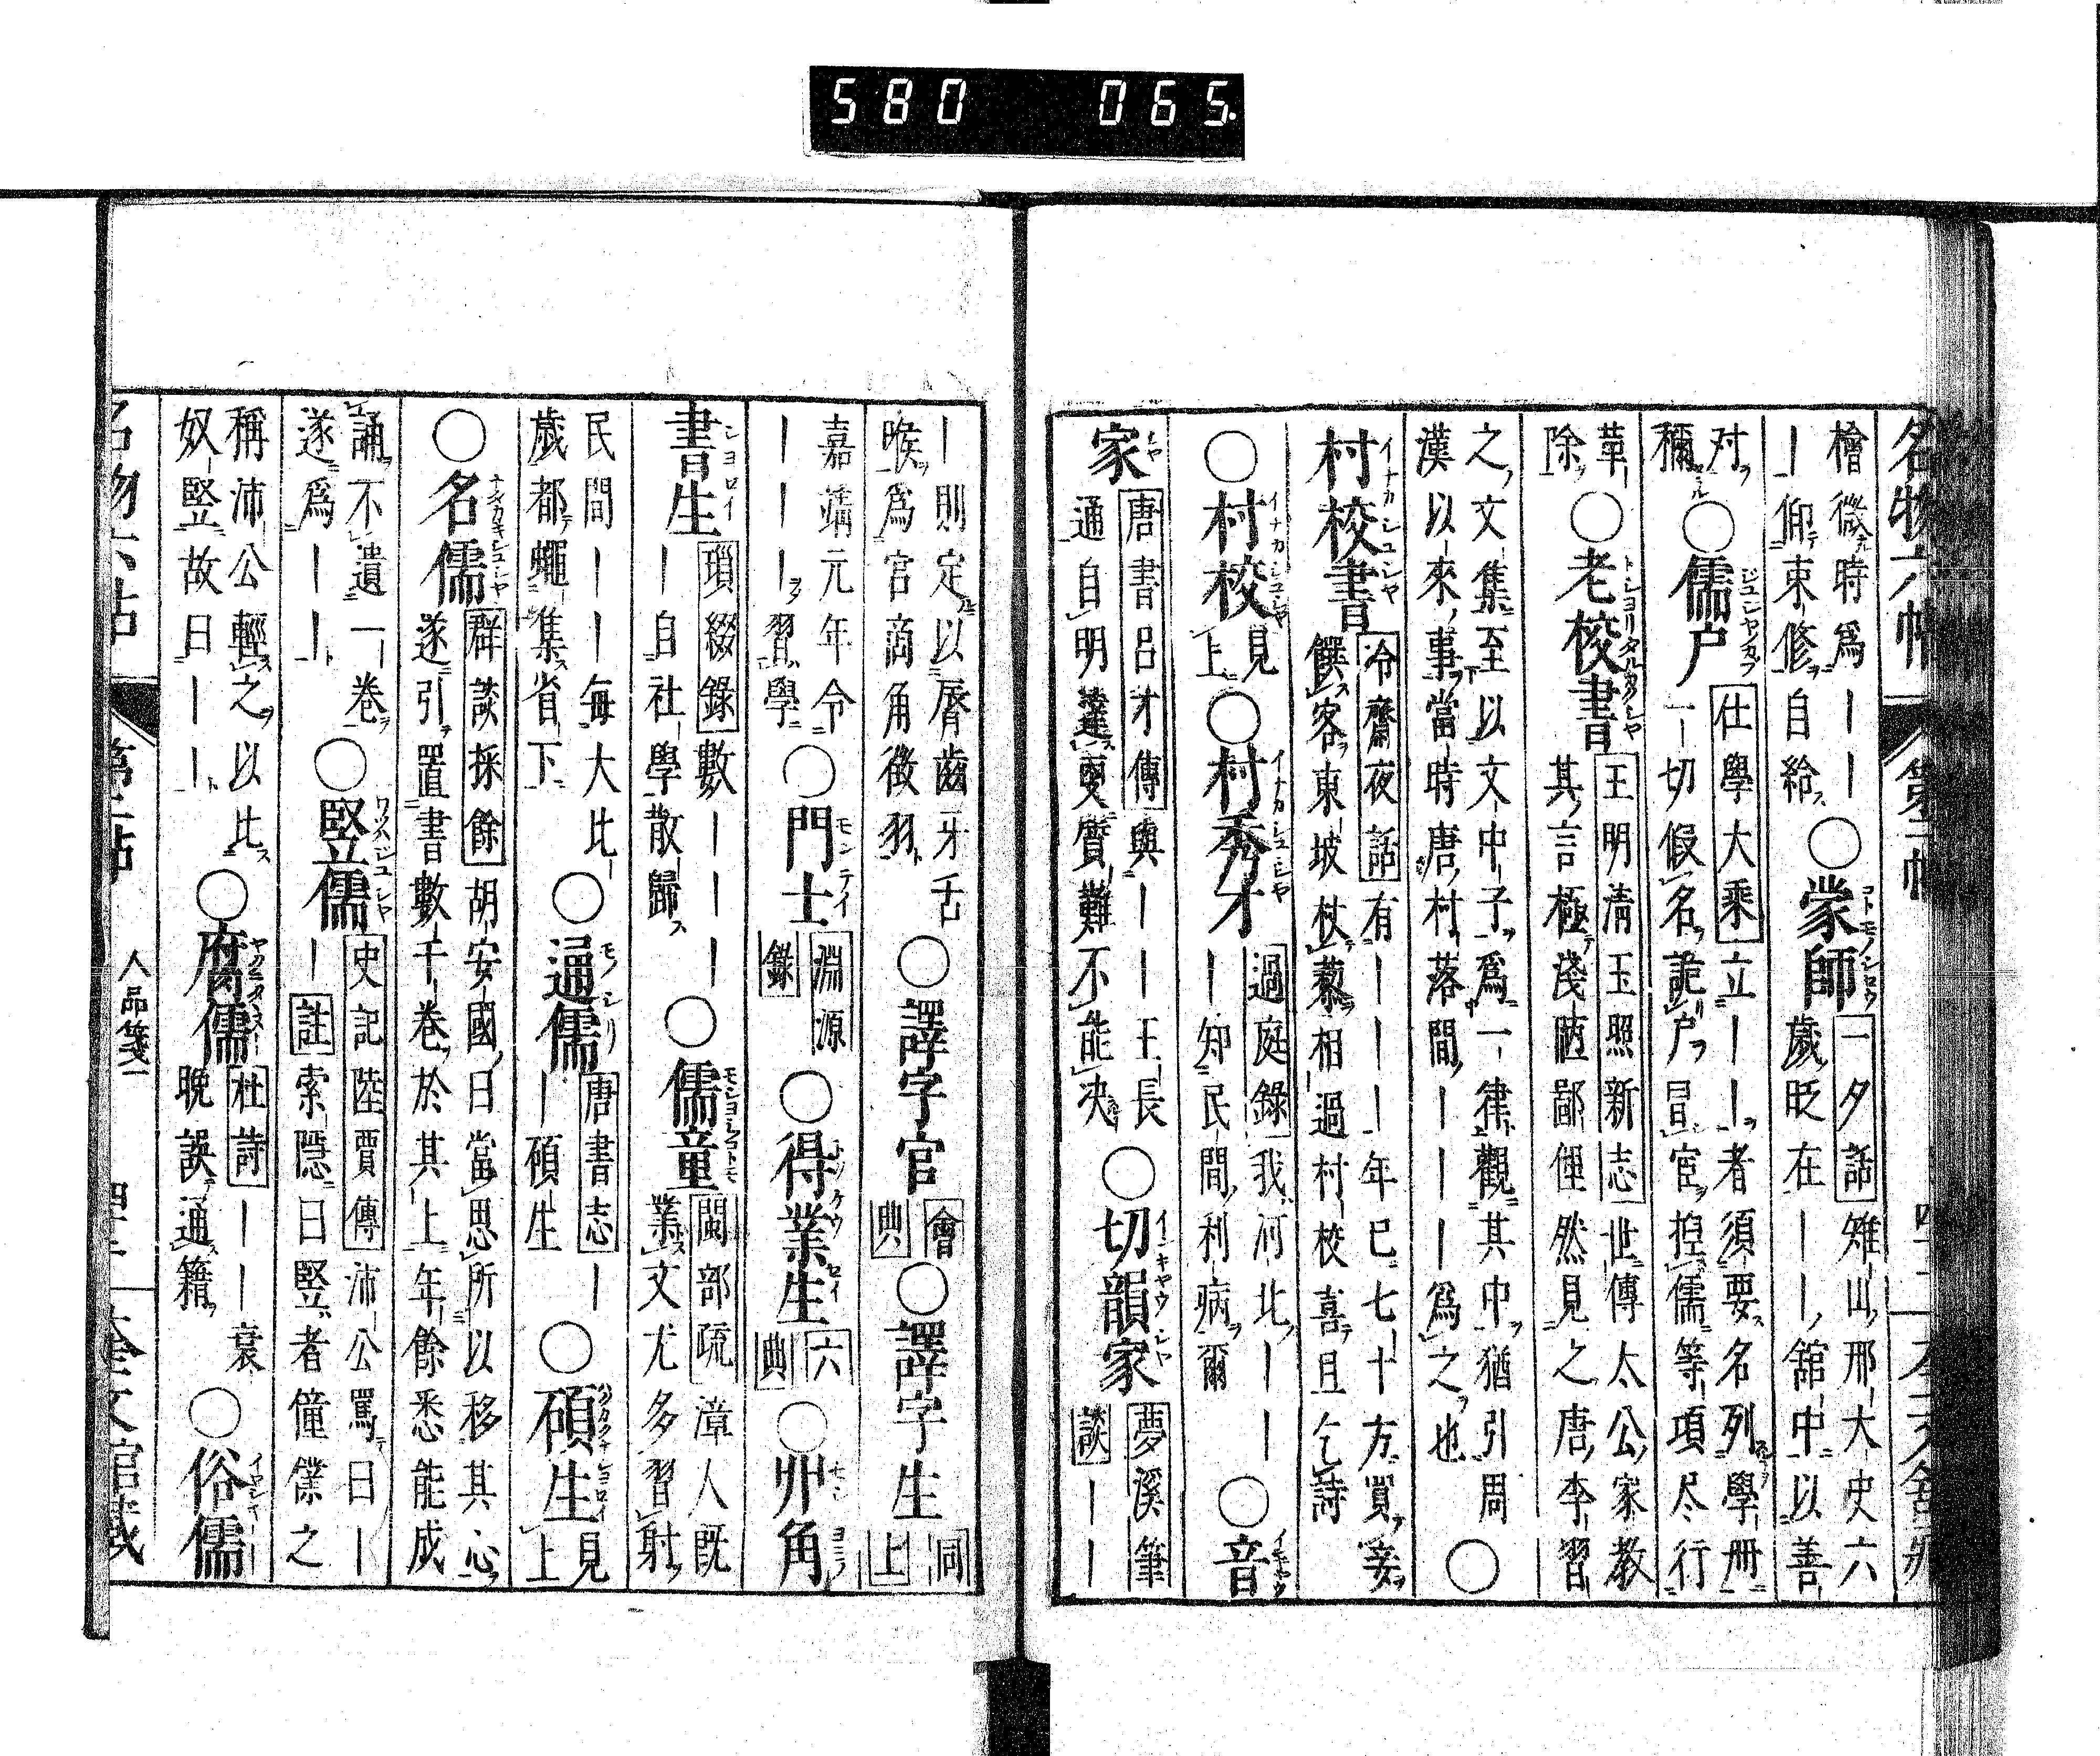 580 065.
名物六帖 第二帖
檜微時爲｜｜
｜仰束修自給
○蒙師
コトモノシセウ
一夕話 雉山邢大史六
歲貶在｜｜館中以善
対
穪
○儒戸
ジユシヤカブ
仕學大乘 立｜｜者須要名列學册
一切假名詭戸冒宦揑儒等項尽行
革
除
○老校書
王明清玉照新志 世傳太公家教
其言極淺陋鄙俚然見之唐李習
之文集至以文中子爲一律觀其中猶引周
漢以來事當時唐村落間｜｜｜爲之也
○
村校書
イナカジユシヤ
冷齋夜話 有｜｜｜年已七十方買妾
饌客東坡杖藜相過村校喜且乞詩
○村校
イナカジユシヤ
見
上
○村秀才
イナカジユシヤ
過庭錄 我河北｜｜
｜知民間利病爾
○音
家
唐書呂才傳 與｜｜王長
通自明達更質難不能决
○切韻家
夢溪筆
談｜｜
｜則定以脣齒牙舌
喉爲宮商角徵羽
○譯字官
會
典
○譯字生
同
上
嘉靖元年令
｜｜｜習學
○門士
モンテイ
淵源
錄
○得業生
トクゲウセイ
六
典
○丱角
書生
シヨロイ
瑣綴錄 數｜｜｜
｜自社學散歸
○儒童
閩部疏 漳人既
業文尤多習射
民間｜｜每大比
歲都蠅集省下
○通儒
モノシリ
唐書志｜
｜碩生
○碩生
見
上
○名儒
群談採餘 胡安國曰當思所以移其心
遂引置書數千卷於其上年餘悉能成
誦不遺一卷
遂爲｜｜
○竪儒
史記陸賈傳 沛公罵曰｜
｜註 索隱曰竪者僮僕之
稱沛公輕之以比
奴竪故曰｜｜
○腐儒
杜詩｜｜衰
晚誤通籍
○俗儒
人品箋二